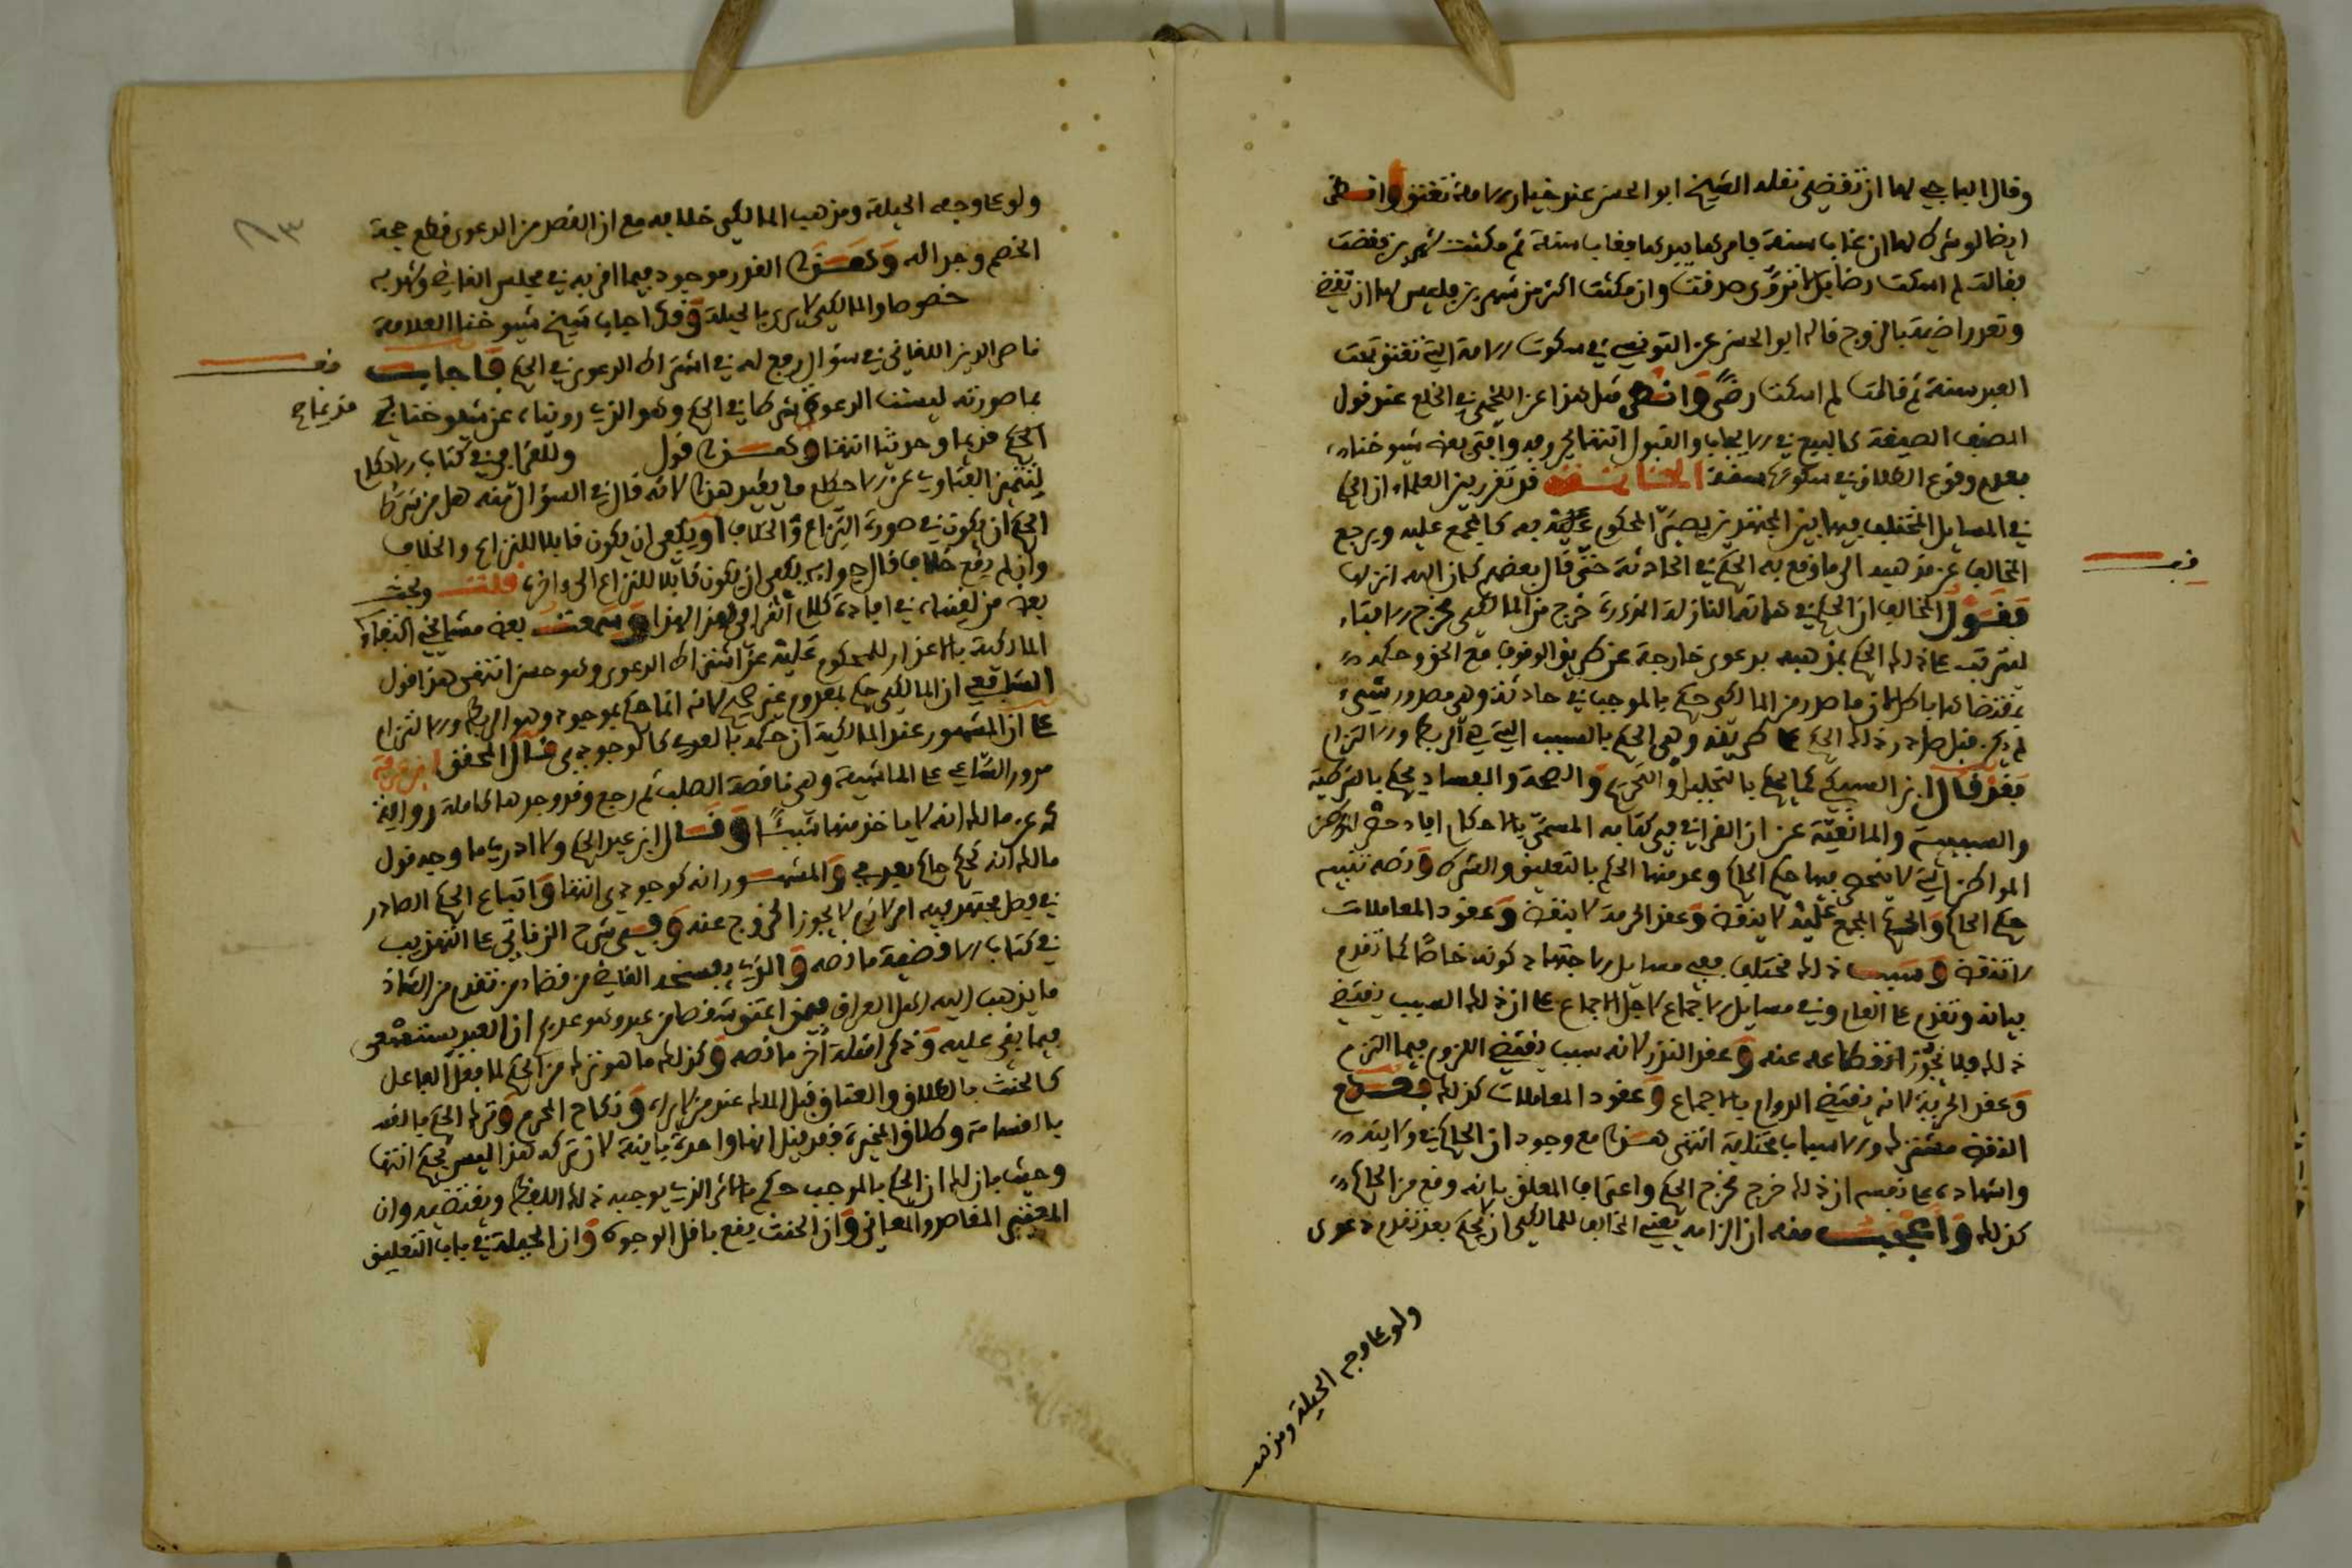 وقال الباجي لها ان تقضي نقله الشيخ ابو الحسن عند خيار الامة تعتق وانظر
ايضا لو شرط لها ان غاب سنة فامرها بيدها فغاب سنة ثم مكثت شهرين وقضت
فقالت لم اسكت رضا بل لانزوى صدقت وان مكثت اكثر من شهرين فليس لها ان تقضي
وتعد راضية بالزوج قاله ابو الحسن عن التونسي في سكوت الامة التي تعتق تحت
العبد سنة ثم قالت لم اسكت رضى وانظر مثل هذا عن اللخمي في الخلع عند قول
المصنف الصيغة كالبيع في الايجاب والقبول انتهى بحروفه وافتى بعض شيوخنا
بعدم وقوع الطلاق في سكوتها سنة قد تقرر بين العلماء ان الحكم
في المسايل المختلف فيها بين المجتهدين يصير المحكوم عليه به كالمجمع عليه ويرجع
المخالف عن مذهبه الى ما وقع به الحكم في الحادثة حتى قال بعضهم كان الله انزلها
فقول المخالف ان الحكم في هاته النازلة خرج من المالكي مخرج الافتاء
ليترتب على ذلك الحكم بمذهبه بدعوى خارجة عن طريق الوقوف مع الحق وحكمه
بمقتضاها باطل لان ما صدر من المالكي حكم بالموجب في حادثة وهي صدور شيء
لم يكن قبل صدر ذلك الحكم على طريقه وهي الحكم بالسبب التي هي الربط والالتزام
فقد قال ابن السبكي كما يحكم بالتحليل والتحريم والصحة والفساد يحكم بالشرطية
والسببية والمانعية عن ان القرافي في كتابه المسمى بالاحكام افاد حصر المواطن
المواطن التي لا ينحصر فيها حكم الحاكم وعد منها الحكم بالتعليق والشرط ونصه تنبيه
حكم الحاكم والحكم المجمع عليه لا ينقض وعقد الحرمة لا ينقض وعقود المعاملات
لا تنقض وسبب ذلك مختلف ففي مسايل الاجتهاد كونه خاصا كما تقدم
بيانه وتقدم على العام وفي مسايل الاجماع لاجل الاجماع على ان ذلك السبب يقتضي
ذلك فلا يجوز انقطاعه عنه وعقد النذر لانه سبب يقتضي اللزوم فيما التزم
وعقد الحرية لانه يقتضي الدوام بالاجماع وعقود المعاملات كذلك
النقض مشترك والاسباب مختلفة انتهى هذا مع وجود ان الحاكم في ولايته
واشهاده على نفسه ان ذلك خرج مخرج الحكم واعتراف المعلق بانه وقع من الحاكم
كذلك واعجب منه ان الزامه يعني المخالف للمالكي ان يحكم بعد تقدم دعوى
ولو على وجه الحيلة ومذهب
فـ
٦٣
ولو على وجه الحيلة ومذهب المالكي خلافه مع ان القصد من الدعوى قطع حجة
الخصم وجداله وهذا القدر موجود فيما اقر به في مجلس القاضي وشهد به
خصوصا والمالكي لا يرى بالحيلة وقد اجاب شيخ شيوخنا العلامة
ناصر الدين اللقاني في سؤال رفع له في اشتراط الدعوى في الحكم فاجاب
بما صورته ليست الدعوى شرطا في الحكم وهو الذي روينا عن شيوخنا في
الحكم قديما وحديثا انتهى وهذا قول وللقرافي في كتاب الاحكام
لتمييز الفتاوي عن الاحكام ما يفيد هذا لانه قال في السؤال منه هل من شرط
الحكم ان يكون في صورة النزاع والخلاف او يكفي ان يكون قابلا للنزاع والخلاف
وان لم يقع خلاف قال جوابه يكفي ان يكون قابلا للنزاع الى اخره قلت وبحث
بعض من لقيناه في افادة كلام القرافي لهذا وسمعت بعض مشايخي اكتفاء
المالكية بالاعذار للمحكوم عليه عن اشتراط الدعوى وهو حسن انتهى هذا قول
الشافعي ان المالكي حكم بمعدوم غير صحيح لانه انما حكم بموجود وهو الربط والالتزام
على ان المشهور عند المالكية ان حكمه بالعدمي كالوجودي قال المحقق ابن عرفة
مرور الساعي على الماشية وهي ناقصة الصلب ثم رجع وقد وجدها كاملة رواية
عن مالك انه لا ياخذ منها شيئا وقال ابن عبد الحكم ولا ادري ما وجه قول
مالك انه كحكم حاكم بعدمي والمشهور انه كوجودي انتهى واتباع الحكم الصادر
في فصل مجتهد فيه امر لازم لا يجوز الخروج عنه وفي شرح الزناتي على التهذيب
في كتاب الاقضية ما نصه والذي يفسخه القاضي من قضاء من تقدم من الشاذ
ما يذهب اليه اهل العراق فيمن اعتق شقصا من عبد وهو عديم ان العبد يستسعى
فيما بقي عليه وذكر امثلة اخر ما نصه وكذلك ما هو ترك من الحكم لما فعل الفاعل
كالحنث بالطلاق والعتاق قبل الملك عند من لا يراه ونكاح المحرم وترك الحكم بالقود
بالقسامة وطلاق المخيرة فقد قيل انها واحدة باينة لان تركه هذا ليس بحكم انتهى
وحيث بان لك ان الحكم بالموجب حكم بالاثر الذي يوجبه ذلك اللفظ ويقتضيه وان
المعتبر المقاصد والمعاني وان الحنث يقع باقل الوجوه وان الحيلة في باب التعليق
قف